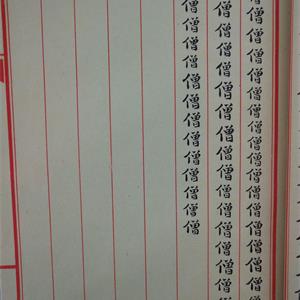 僧僧僧僧僧僧僧僧僧僧僧僧僧僧僧僧
僧僧僧僧僧僧僧僧僧僧僧僧僧僧僧
僧僧僧僧僧僧僧僧僧僧僧僧僧